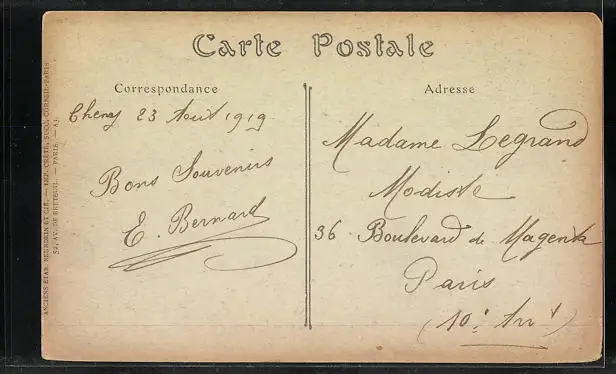 Carte Postale
Correspondance
Adresse
ANCIENS ÉTAB. NEURDEIN ET CIE. — IMP. CRÉTÉ, SUCC. CORBEIL-PARIS
52, AV. DE BRETEUIL. — PARIS. —
Cheny 23 Août 1919
Bons Souvenirs
E. Bernard
Madame Legrand
Modiste
36 Boulevard de Magenta
Paris
(10e Arrt)